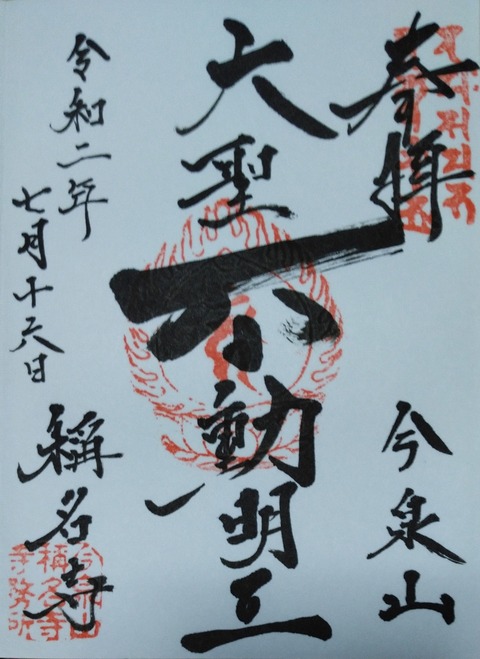 奉拝
今泉山
大聖不動明王
令和二年
七月十六日
稱名寺
今泉山
稱名寺
寺務所